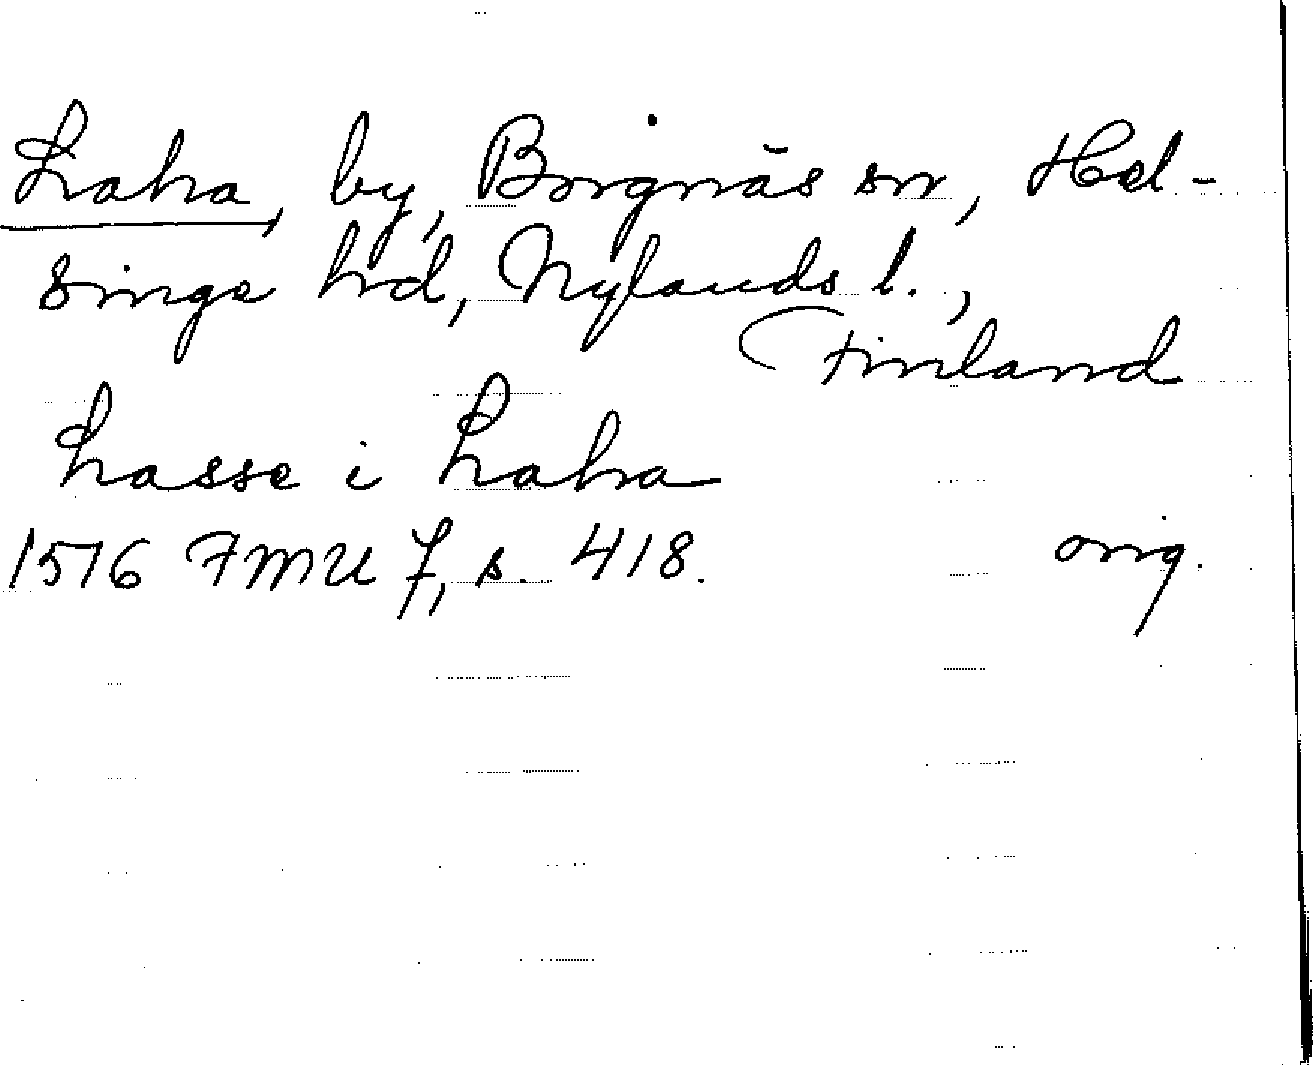 Laha, by, Borgnäs sn, Hel-
singe hd, Nylands l.,
Finland
Lasse i Laha
1576 FMU 7, s. 418. orig.